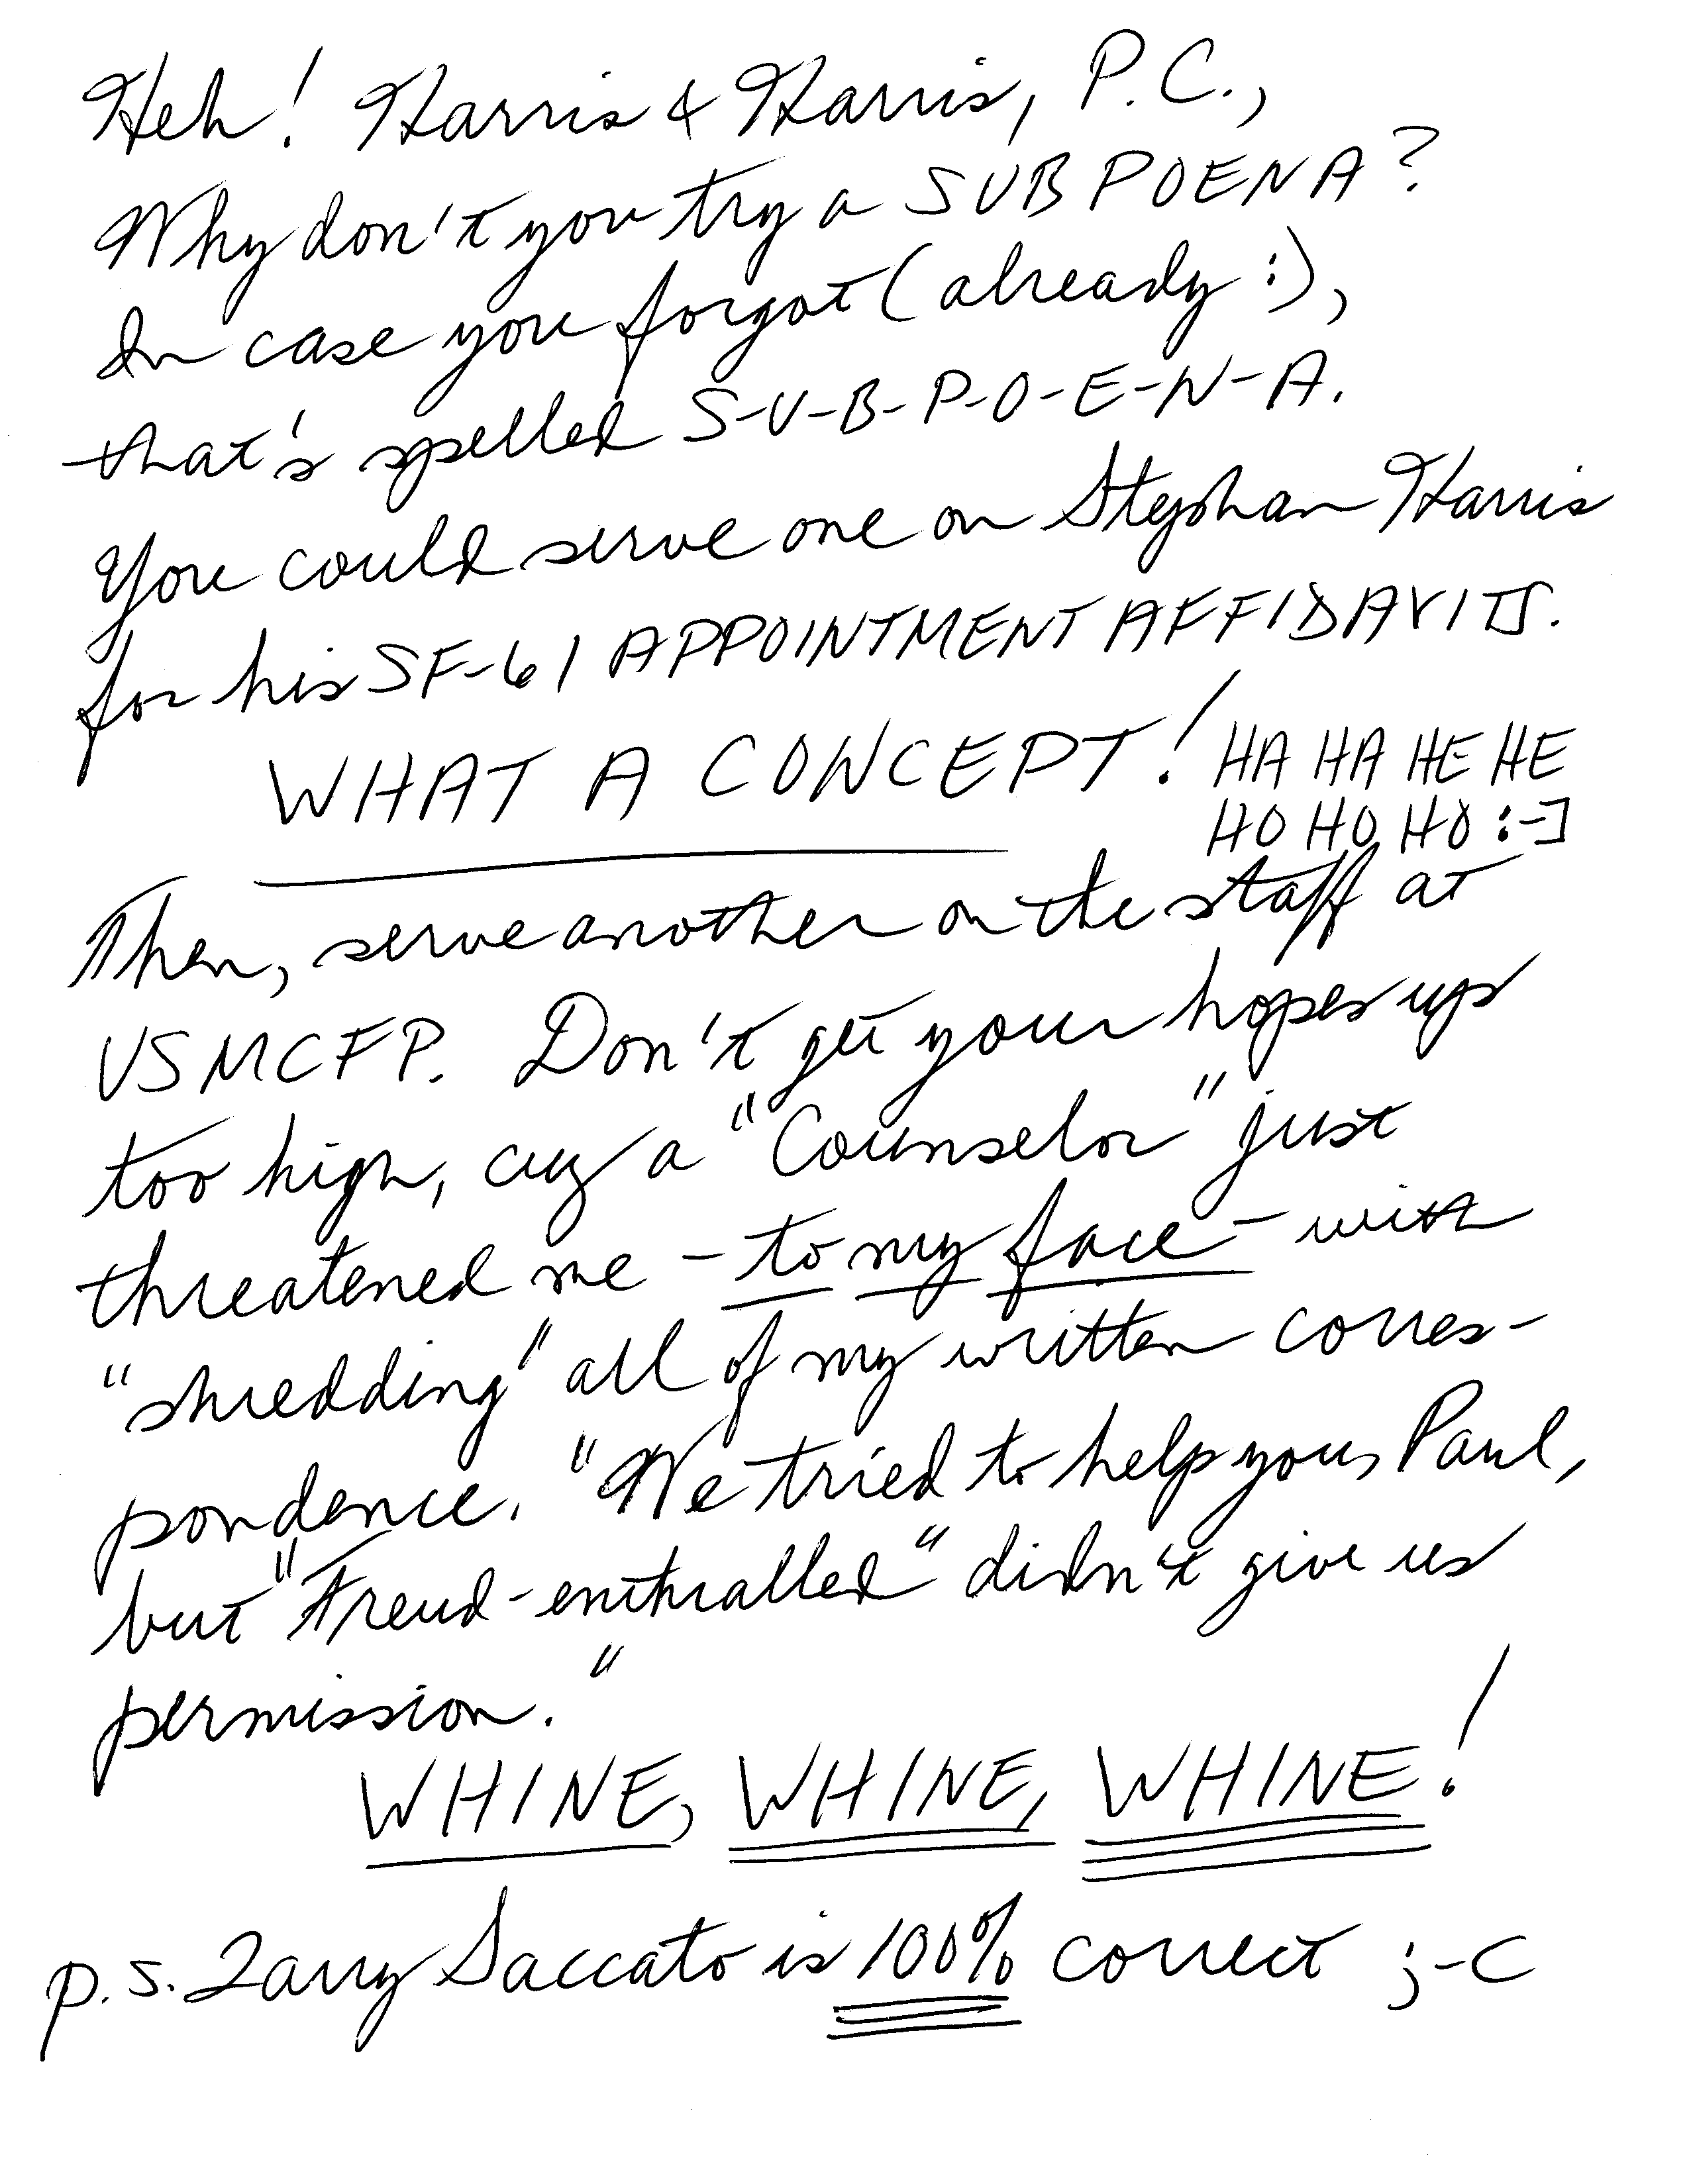 Heh! Harris & Harris, P.C.,
Why don't you try a SUBPOENA?
In case you forgot (already :),
that's spelled S-U-B-P-O-E-N-A.
You could serve one on Stephan Harris
for his SF-61 APPOINTMENT AFFIDAVITS.
WHAT A CONCEPT! HA HA HE HE
HO HO HO :-]
Then, serve another on the staff at
USMCFP. Don't get your hopes up
too high, cuz a "Counselor" just
threatened me - to my face - with
"shredding" all of my written corres-
pondence. "We tried to help you, Paul,
but "Freud-enthralled" didn't give us
permission."
WHINE, WHINE, WHINE!
p.s. Larry Saccato is 100% correct ;-C